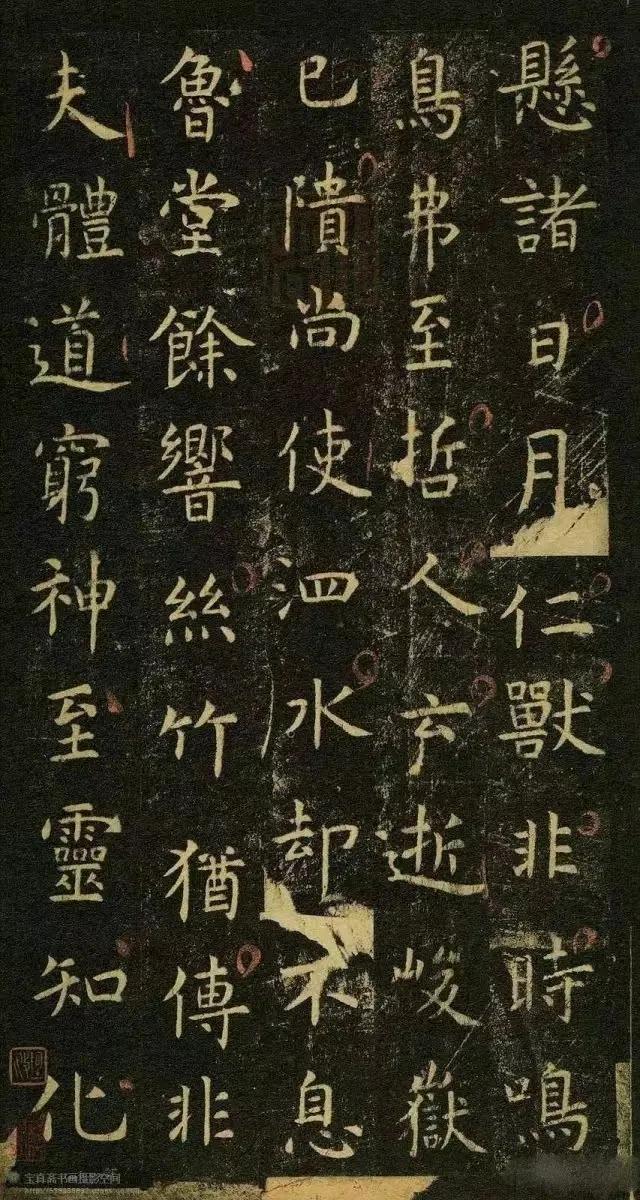 懸諸日月仁獸非時鳴
鳥弗至哲人云逝峻嶽
已隤尚使泗水却不息
魯堂餘響絲竹猶傳非
夫體道窮神至靈知化
宝真斋书画摄影空间